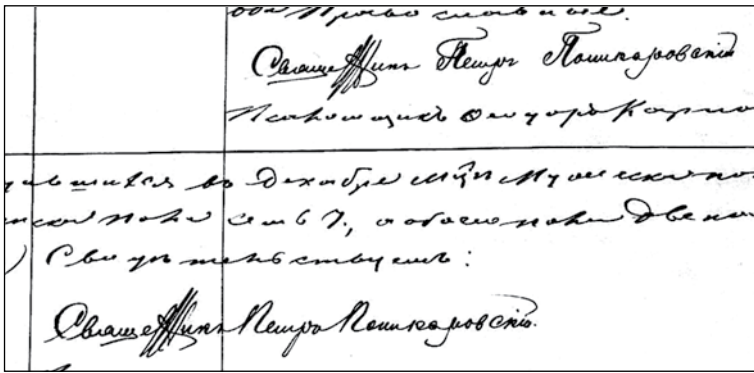 оба Православные.
Священникъ Петръ Пошкаровскій
Псаломщикъ Ѳеодоръ
въ Декабрѣ м-цѣ мужеска по
женска пола семь 7, а обоего пола две на
Свидѣтельствуемъ:
Священникъ Петръ Пошкаровскій.